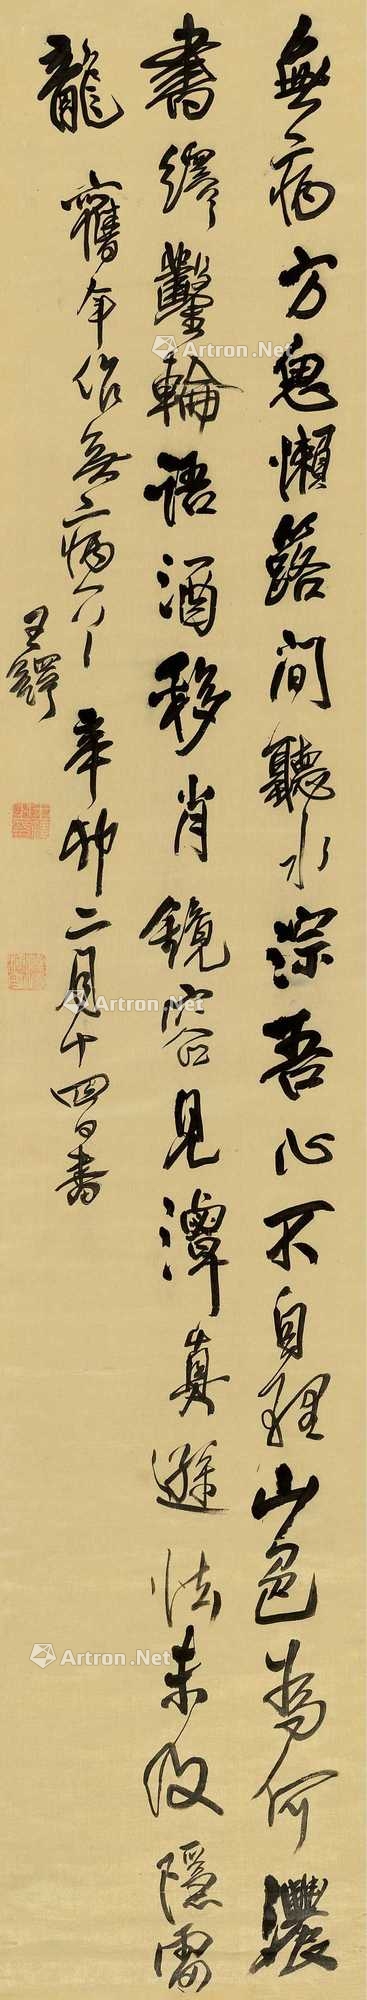 無病方懶間聽水淙吾心不自理山色為何濃
書繹鑿輪語酒移肖鏡容見潭真遜怯未及隱雷
龍 舊年作無病 辛卯二月十四日書
王鐸
Artron.Net
Artron.Net
Artron.Net
Artron.Net
Artron.Net
Artron.Net